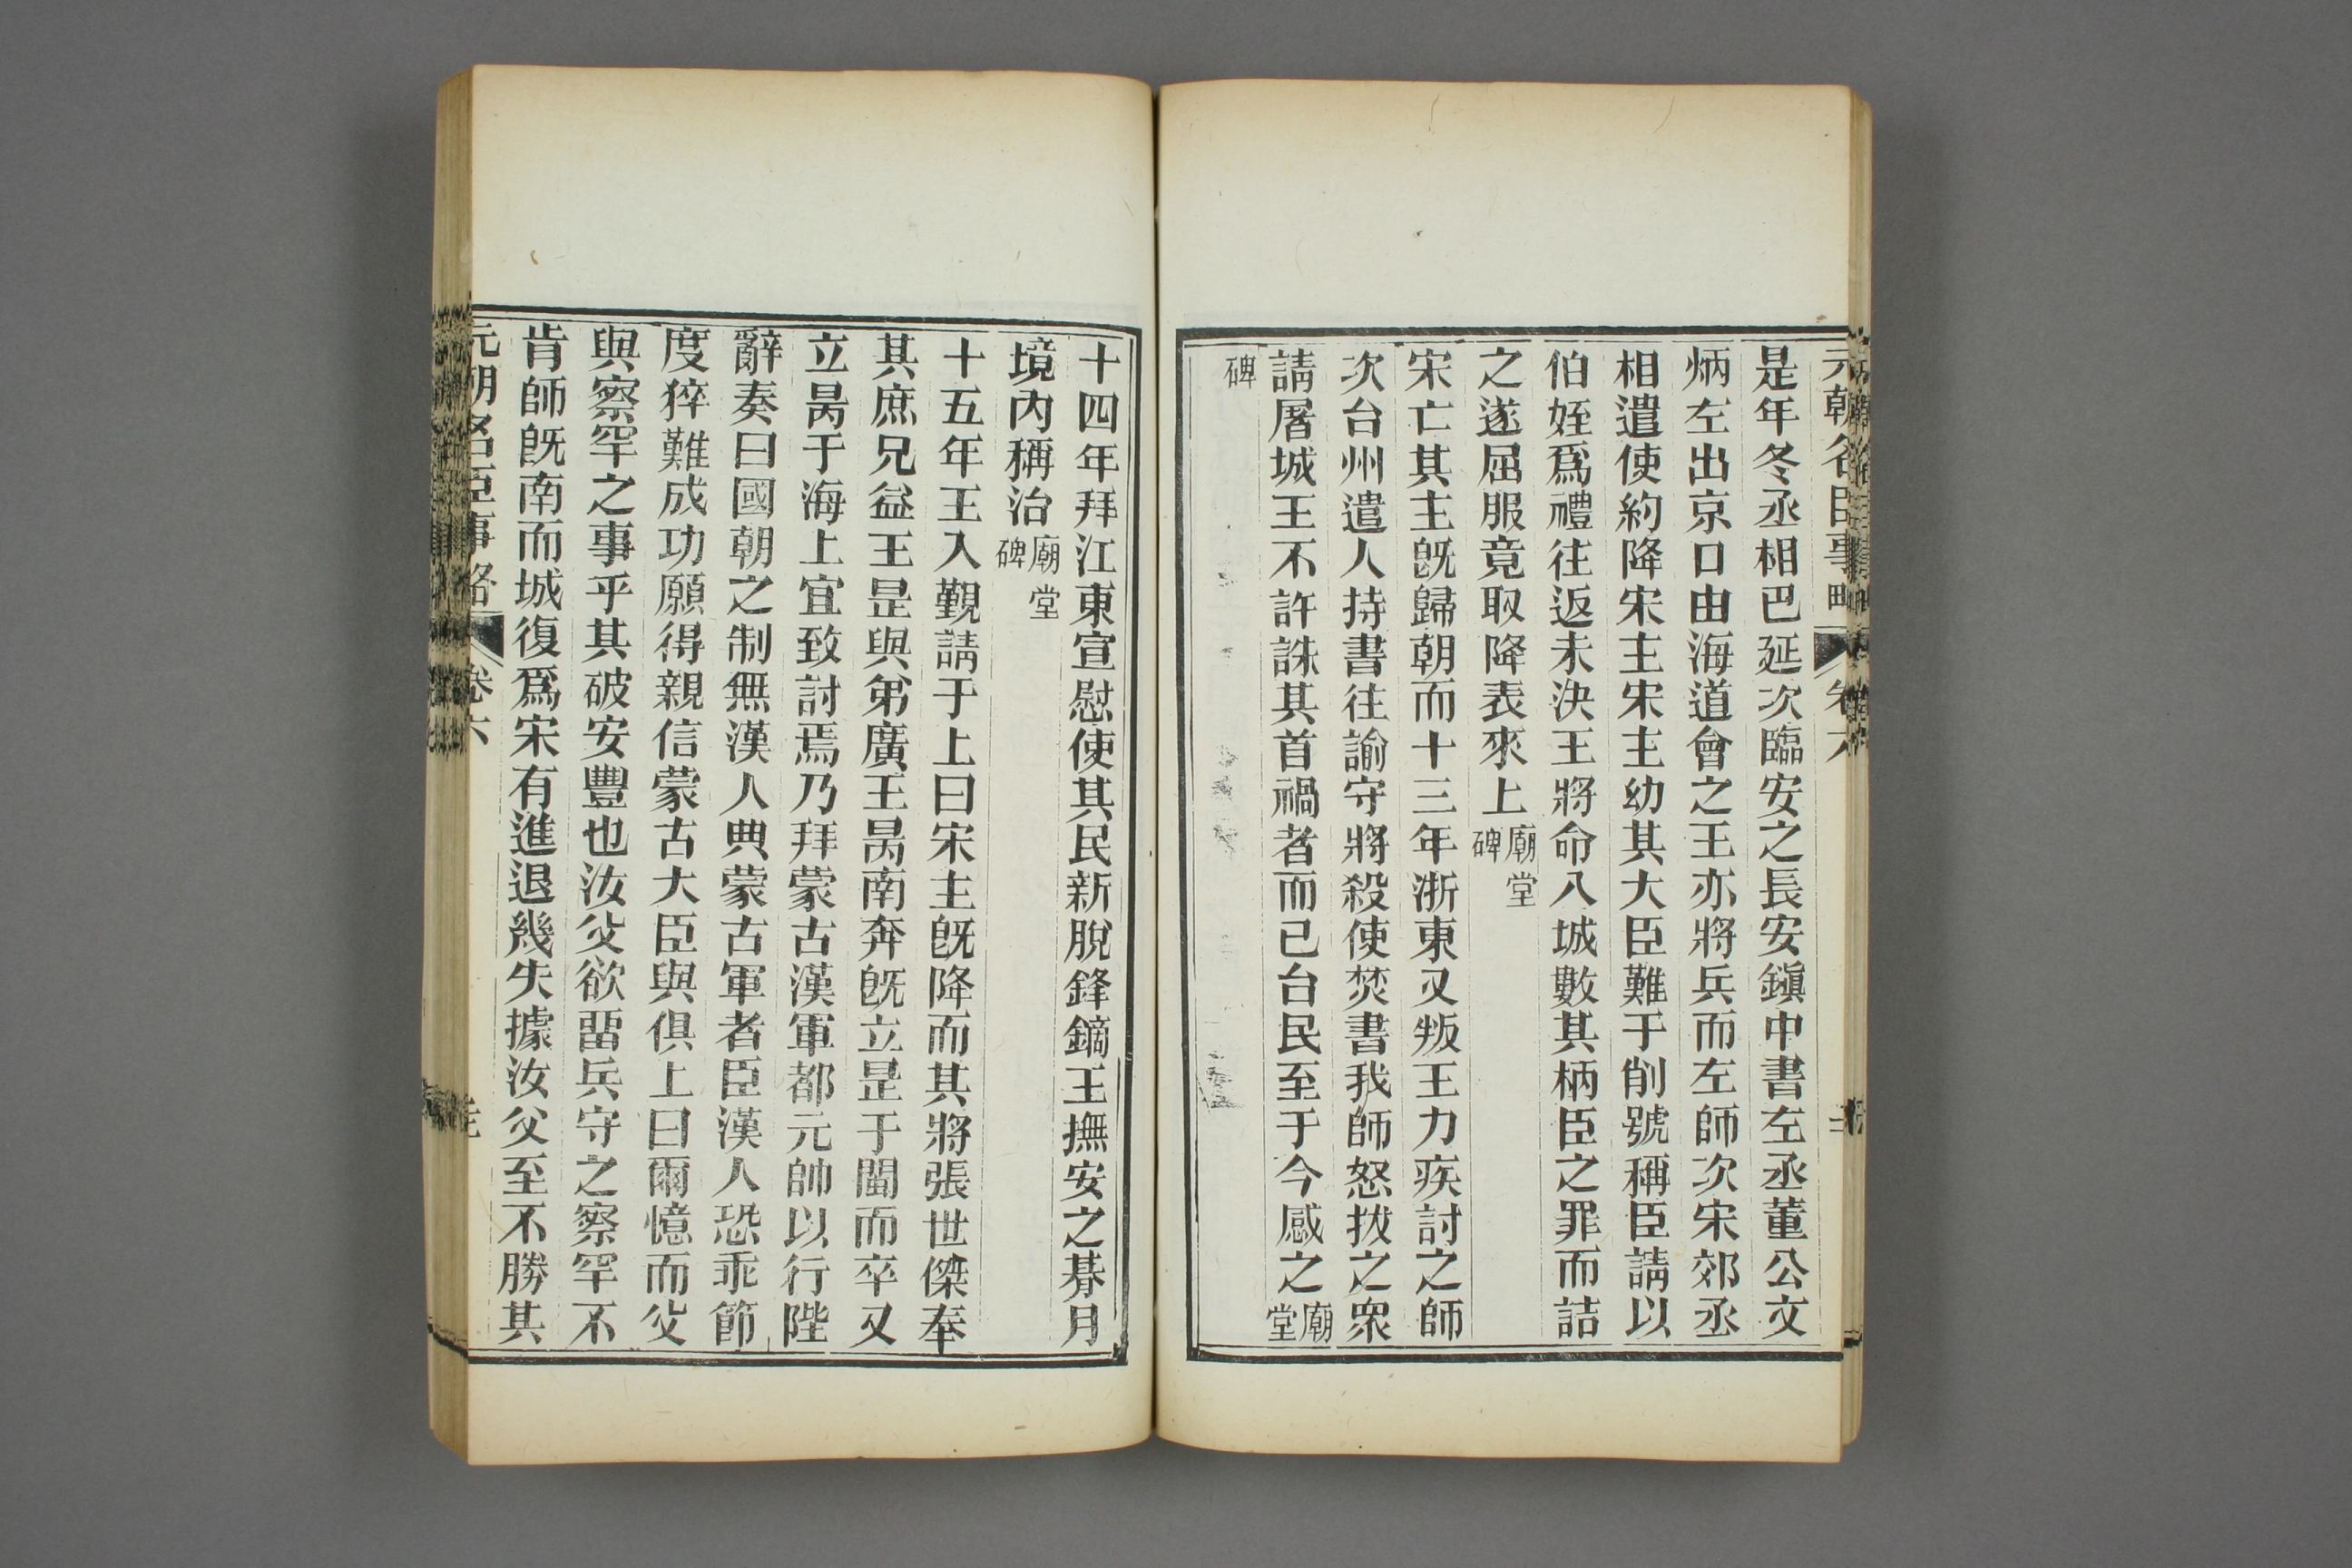 元朝名臣事略 卷六
是年冬丞相巴延次臨安之長安鎭中書左丞董公文
炳左出京口由海道會之王亦將兵而左師次宋郊丞
相遣使約降宋主宋主幼其大臣難于削號稱臣請以
伯姪爲禮往返未決王將命入城數其柄臣之罪而詰
之遂屈服竟取降表來上廟堂碑
宋亡其主旣歸朝而十三年浙東又叛王力疾討之師
次台州遣人持書往諭守將殺使焚書我師怒拔之衆
請屠城王不許誅其首禍者而已台民至于今感之廟堂
碑
十四年拜江東宣慰使其民新脫鋒鏑王撫安之朞月
境內稱治廟堂碑
十五年王入覲請于上曰宋主旣降而其將張世傑奉
其庶兄益王昰與弟廣王昺南奔旣立昰于閩而卒又
立昺于海上宜致討焉乃拜蒙古漢軍都元帥以行陛
辭奏曰國朝之制無漢人典蒙古軍者臣漢人恐乖節
度猝難成功願得親信蒙古大臣與俱上曰爾憶而父
與察罕之事乎其破安豐也汝父欲畱兵守之察罕不
肯師旣南而城復爲宋有進退幾失據汝父至不勝其
元朝名臣事略 卷六